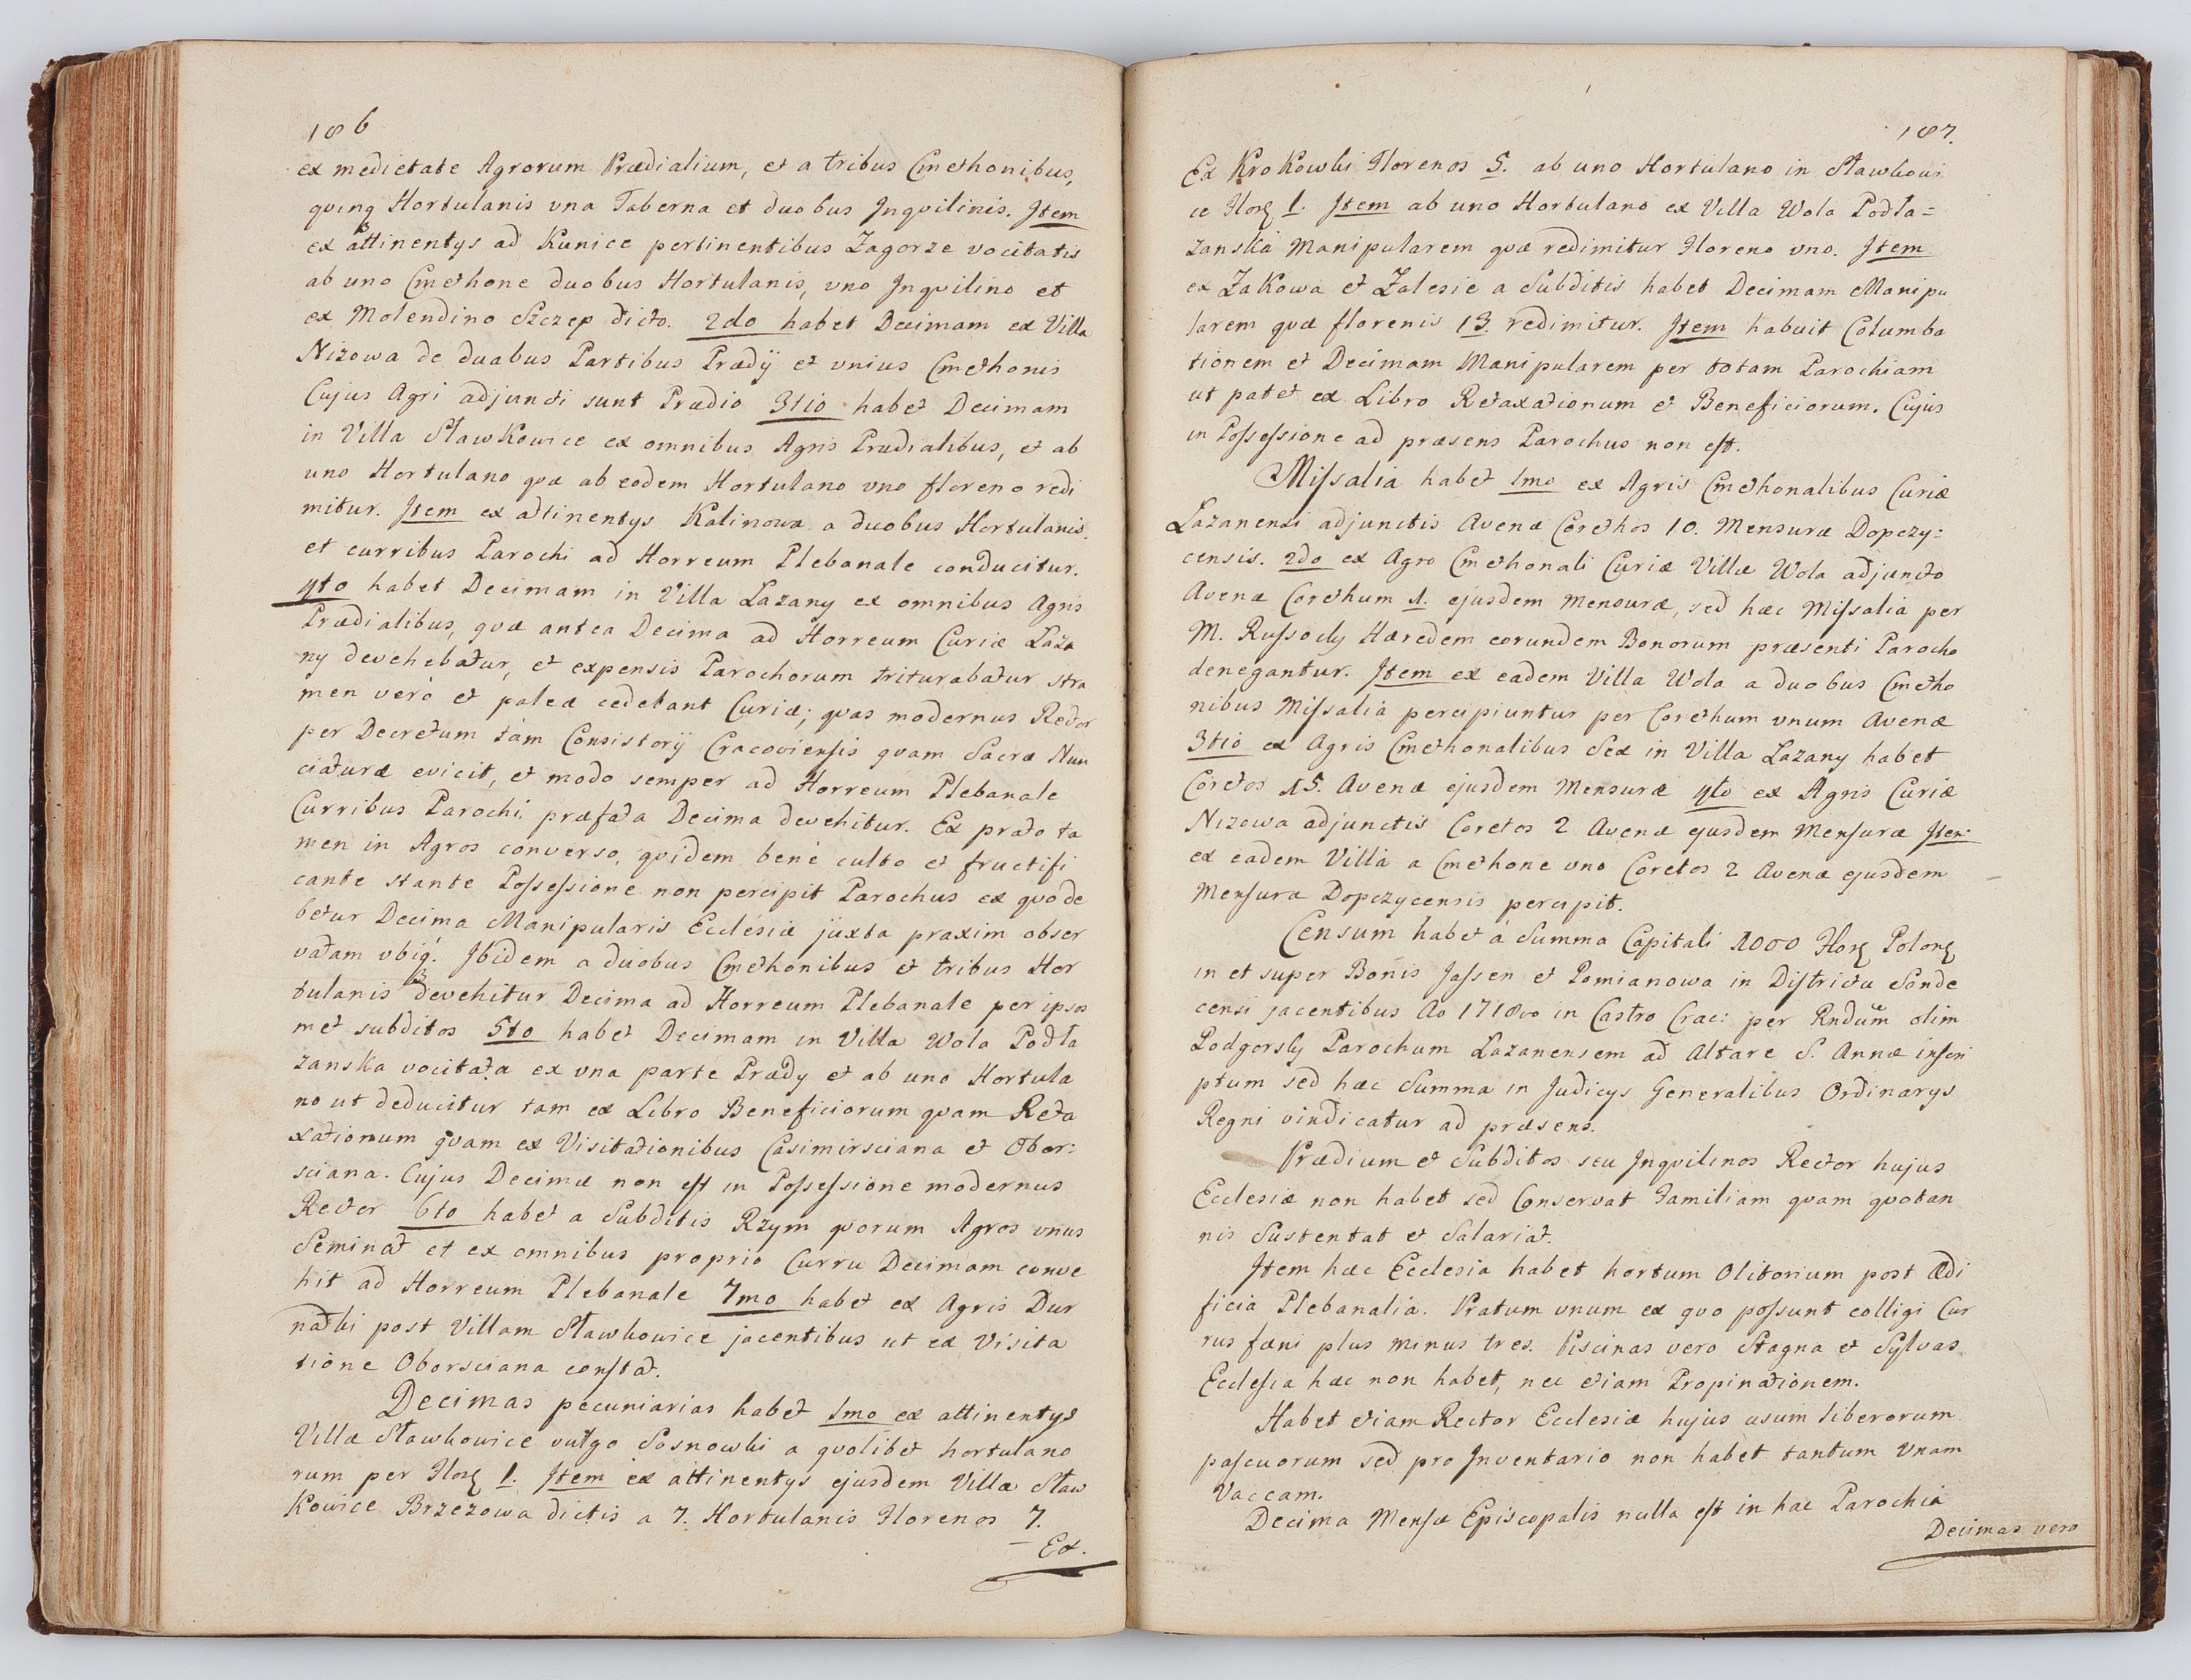 186
ex medietate Agrorum Prædialium, et a tribus Cmethonibus,
qving Hortulanis vna Taberna et duobus Jnqvilinis. Jtem
ex attinentys ad Kunice pertinentibus Zagorze vocitatis
ab uno Cmethone duobus Hortulanis, vno Jnqvilino et
ex Molendino Szczep dicto. 2do habet Decimam ex Villa
Nizowa de duabus Partibus Prædij et vnius Cmethonis
Cujus Agri adjuncti sunt Prædio 3tio habet Decimam
in Villa Sławkowice ex omnibus Agris Prædialibus, et ab
uno Hortulano qvæ ab eodem Hortulano vno floreno redi
mitur. Jtem ex attinentys Kalinowa a duobus Hortulanis.
et curribus Parochi ad Horreum Plebanale conducitur.
4to habet Decimam in Villa Lazany ex omnibus Agris
Prædialibus, qvæ antea Decima ad Horreum Curiæ Laza
ny devehebatur, et expensis Parochorum triturabatur stra
men vero et paleæ cedebant Curiæ; qvas modernus Rector
per Decretum tam Consistorij Cracoviensis qvam Sacræ Nun
ciaturæ evicit, et modo semper ad Horreum Plebanale
Curribus Parochi præfata Decima devehitur. Ex prato ta
men in Agros converso, qvidem bene culto et fructifi
cante stante Possessione non percipit Parochus ex qvo de
betur Decima Manipularis Ecclesiæ juxta praxim obser
vatam vbiq. Jbidem a duobus Cmethonibus et tribus Hor
tulanis devehitur Decima ad Horreum Plebanale per ipsos
met subditos 5to habet Decimam in Villa Wola Podła
zanska vocitata ex vna parte Prædy et ab uno Hortula
no ut deducitur tam ex Libro Beneficiorum qvam Reta
xationum qvam ex Visitationibus Casimirsciana et Obor:
sciana. Cujus Decimæ non est in Possessione modernus
Rector 6to habet a Subditis Rzym qvorum Agros vnus
Seminat et ex omnibus proprio Curru Decimam conve
hit ad Horreum Plebanale 7mo habet ex Agris Dur
natki post Villam Sławkowice jacentibus ut ex Visita
tione Oborsciana constat.
Decimas pecuniarias habet 1mo ex attinentys
Villæ Sławkowice vulgo Sosnowki a qvolibet hortulano
rum per Flor 1. Jtem ex attinentys ejusdem Villæ Sław
Kowice Brzezowa dictis a 7. Hortulanis Florenos 7.
Ex.
187.
Ex KroKowki Florenos 5. ab uno Hortulano in Sławkowi
ce Flor 1. Jtem ab uno Hortulano ex Villa Wola Podła=
zanska Manipularem qvæ redimitur Floreno vno. Jtem
ex ZaKowa et Zalesie a Subditis habet Decimam Manipu
larem qvæ florenis 13. redimitur. Jtem habuit Columba
tionem et Decimam Manipularem per totam Parochiam
ut patet ex Libro Retaxationum et Beneficiorum. Cujus
in Possessione ad præsens Parochus non est.
Missalia habet 1mo ex Agris Cmethonalibus Curiæ
Lazanensi adjunctis Avenæ Corethos 10. Mensuræ Dopczy=
censis. 2do ex Agro Cmethonali Curiæ Villæ Wola adjuncto
Avenæ Corethum 1. ejusdem mensuræ, sed hæc Missalia per
M. Russocky Hæredem eorundem Bonorum præsenti Parocho
denegantur. Jtem ex eadem Villa Wola a duobus Cmetho
nibus Missalia percipiuntur per Corethum vnum Avenæ
3tio ex Agris Cmethonalibus Sex in Villa Lazany habet
Coretos 15. Avenæ ejusdem Mensuræ 4to ex Agris Curiæ
Nizowa adjunctis Coretos 2 Avenæ ejusdem Mensuræ Jtem
ex eadem Villa a Cmethone vno Coretos 2 Avenæ ejusdem
Mensuræ Dopczycensis percipit.
Censum habet a Summa Capitali 1000 Flor Polon
in et super Bonis Jassen et Pomianowa in Districtu Sande
censi jacentibus Ao 1718vo in Castro Crac: per Rndum olim
Podgorsky Parochum Lazanensem ad Altare S. Annæ inscri
ptum sed hæc Summa in Judicys Generalibus Ordinarys
Regni vindicatur ad præsens.
Prædium et Subditos seu Jnqvilinos Rector hujus
Ecclesiæ non habet sed Conservat Familiam qvam qvotan
nis Sustentat et Salariat.
Jtem hæc Ecclesia habet hortum Olitorium post Ædi
ficia Plebanalia. Pratum vnum ex qvo possunt colligi Cur
rus fæni plus minus tres. Piscinas vero Stagna et Sylvas
Ecclesia hæc non habet, nec etiam Propinationem.
Habet etiam Rector Ecclesiæ hujus usum liberorum
pascuorum sed pro Jnventario non habet tantum Vnam
Vaccam.
Decima Mensæ Episcopalis nulla est in hac Parochia
Decimas vero